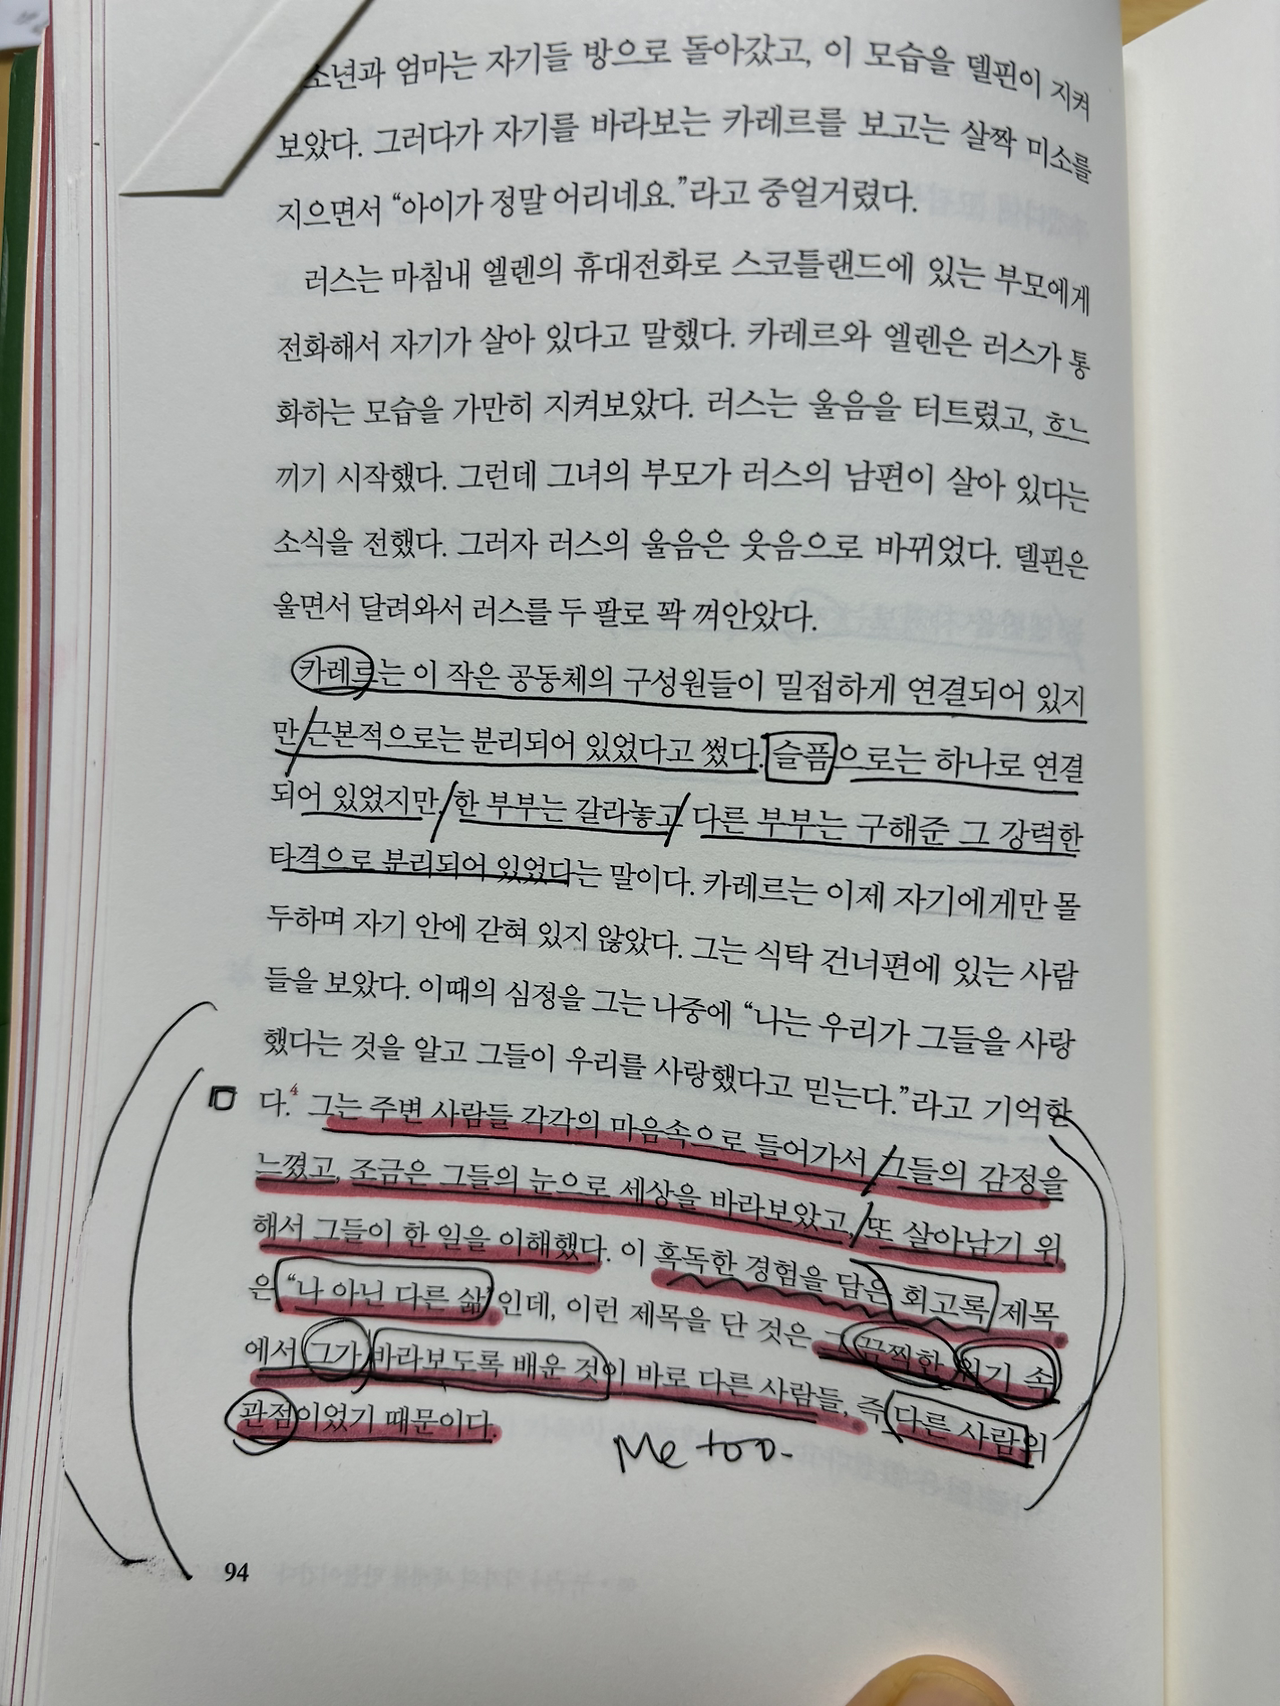 소년과 엄마는 자기들 방으로 돌아갔고, 이 모습을 델핀이 지켜
보았다. 그러다가 자기를 바라보는 카레르를 보고는 살짝 미소를
지으면서 “아이가 정말 어리네요.”라고 중얼거렸다.
러스는 마침내 엘렌의 휴대전화로 스코틀랜드에 있는 부모에게
전화해서 자기가 살아 있다고 말했다. 카레르와 엘렌은 러스가 통
화하는 모습을 가만히 지켜보았다. 러스는 울음을 터트렸고, 흐느
끼기 시작했다. 그런데 그녀의 부모가 러스의 남편이 살아 있다는
소식을 전했다. 그러자 러스의 울음은 웃음으로 바뀌었다. 델핀은
울면서 달려와서 러스를 두 팔로 꽉 껴안았다.
카레르는 이 작은 공동체의 구성원들이 밀접하게 연결되어 있지
만 근본적으로는 분리되어 있었다고 썼다. 슬픔으로는 하나로 연결
되어 있었지만, 한 부부는 갈라놓고 다른 부부는 구해준 그 강력한
타격으로 분리되어 있었다는 말이다. 카레르는 이제 자기에게만 몰
두하며 자기 안에 갇혀 있지 않았다. 그는 식탁 건너편에 있는 사람
들을 보았다. 이때의 심정을 그는 나중에 “나는 우리가 그들을 사랑
했다는 것을 알고 그들이 우리를 사랑했다고 믿는다.”라고 기억한
다.4 그는 주변 사람들 각각의 마음속으로 들어가서 그들의 감정을
느꼈고, 조금은 그들의 눈으로 세상을 바라보았고, 또 살아남기 위
해서 그들이 한 일을 이해했다. 이 혹독한 경험을 담은 회고록 제목
은 “나 아닌 다른 삶”인데, 이런 제목을 단 것은 그 끔찍한 위기 속
에서 그가 바라보도록 배운 것이 바로 다른 사람들, 즉 다른 사람의
관점이었기 때문이다.
Me too.
94